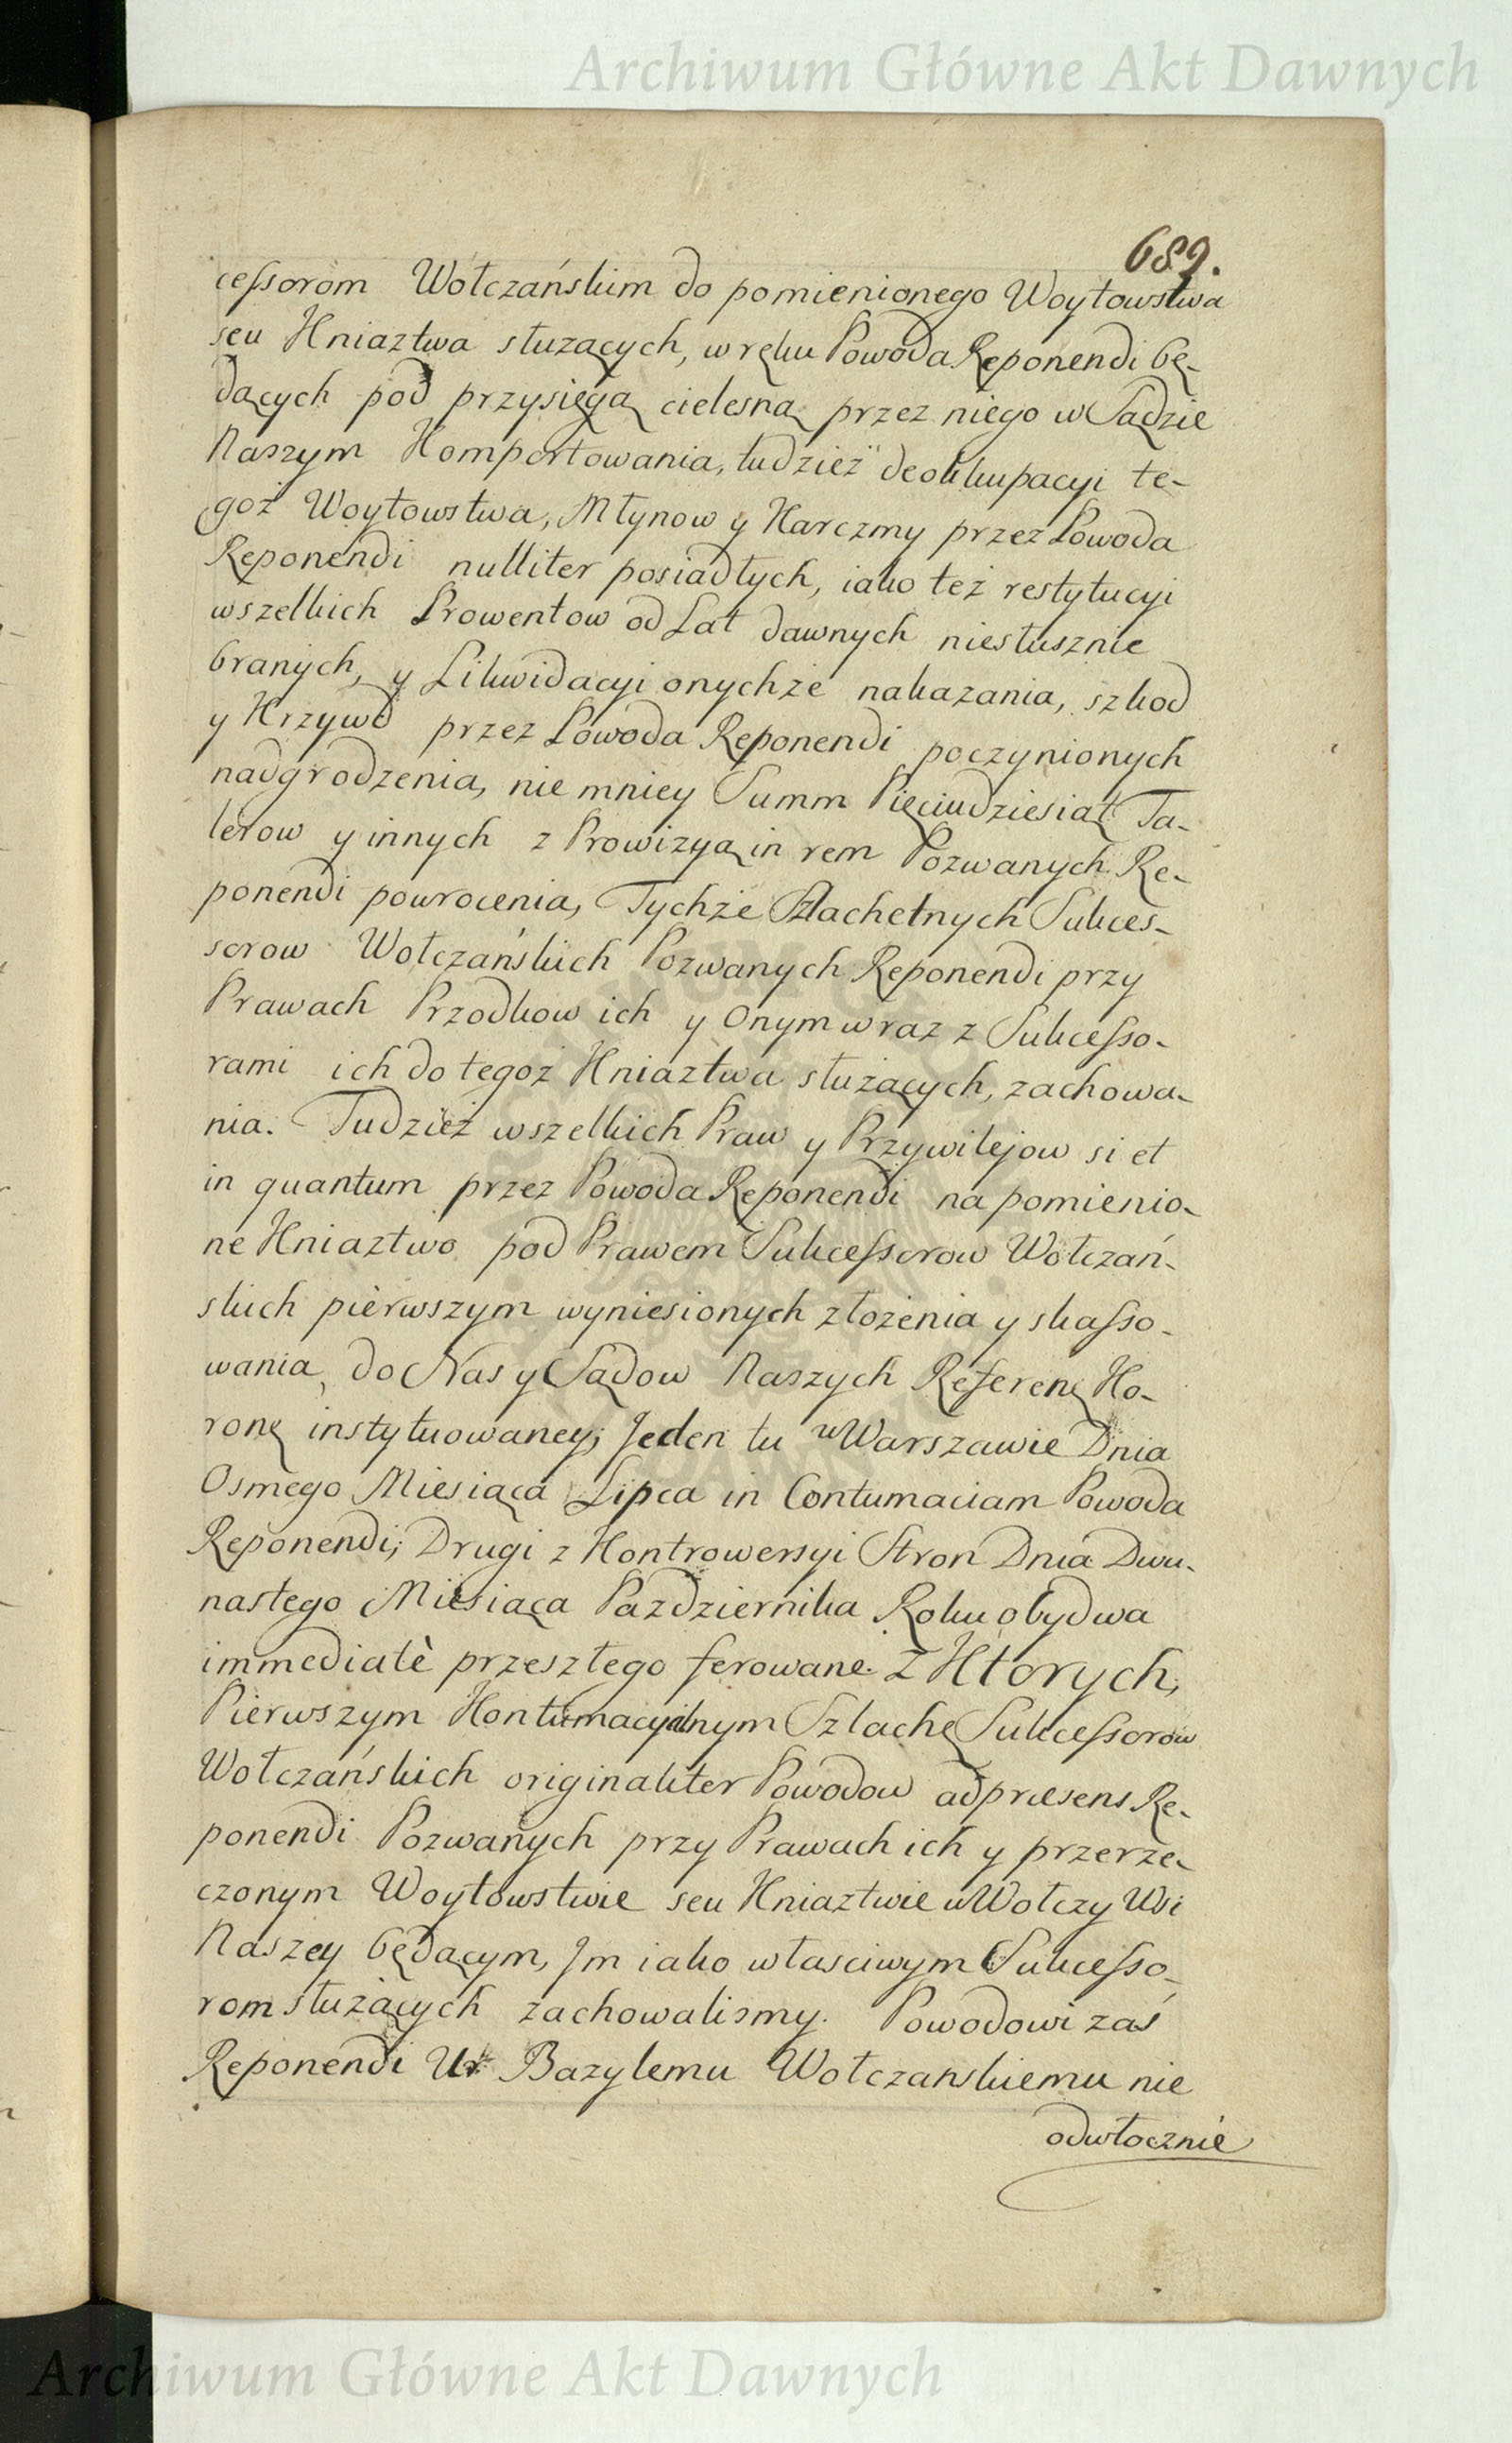 Archiwum Główne Akt Dawnych
689.
cessorom Wołczańskim do pomienionego Woytowstwa
seu Kniaztwa słuzących, w ręku Powoda Reponendi bę-
dących pod przysięgą cielesną przez niego w Sądzie
Naszym Komportowania, tudzież deokkupacyi te-
goż Woytowstwa, Młynow y Karczmy przez Powoda
Reponendi nulliter posiadłych, iako też restytucyi
wszelkich Prowentow od Lat dawnych niesłusznie
branych, y Likwidacyi onychże nakazania, szkod
y Krzywd przez Powoda Reponendi poczynionych
nadgrodzenia, nie mniey Summ Pięciudziesiąt Ta-
lerow y innych z Prowizyą in rem Pozwanych Re-
ponendi powrocenia, Tychże Szlachetnych Sukces-
sorow Wołczańskich Pozwanych Reponendi przy
Prawach Przodkow ich y Onym wraz z Sukcesso-
rami ich do tegoż Kniaztwa służących, zachowa-
nia. Tudzież wszelkich Praw y Przywilejow si et
in quantum przez Powoda Reponendi na pomienio-
ne Kniaztwo pod Prawem Sukcessorow Wołczań-
skich pierwszym wyniesionych złożenia y skasso-
wania, do Nas y Sądow Naszych Referen. Ko-
ronę instytuowaney; Jeden tu w Warszawie Dnia
Osmego Miesiąca Lipca in Contumaciam Powoda
Reponendi; Drugi z Kontrowersyi Stron Dnia Dwu-
nastego Miesiąca Pazdziernika Roku obydwa
immediatè przeszłego ferowane. Z Ktorych,
Pierwszym Kontumacyalnym Szlachę Sukcessorow
Wołczańskich originaliter Powodow ad præsens Re-
ponendi Pozwanych przy Prawach ich y przerze-
czonym Woytowstwie seu Kniaztwie w Wołczy Wsi
Naszey będącym, Jm iako własciwym Sukcesso-
rom służących zachowalismy. Powodowi zaś
Reponendi Ur. Bazylemu Wołczanskiemu nie
odwłocznie
Archiwum Główne Akt Dawnych